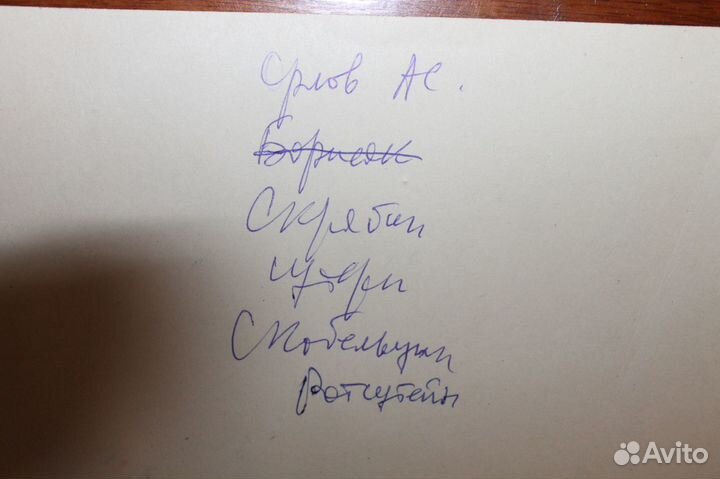 Орлов АС.
Борисяк
Скрябин
Скобельцын
Ротштейн
Avito